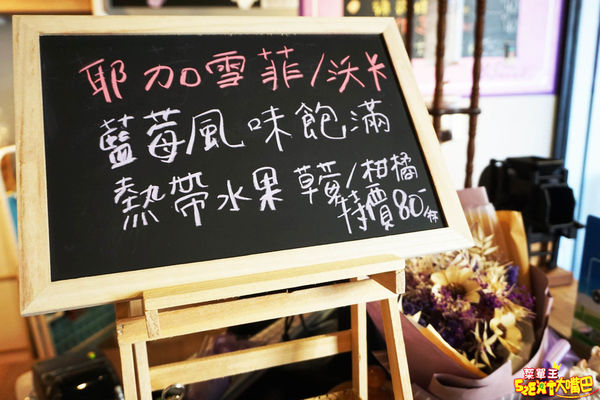 耶加雪菲/沃卡
藍莓風味飽滿
熱帶水果 草莓/柑橘
特價80-/杯
菜單王
52EAT大嘴巴